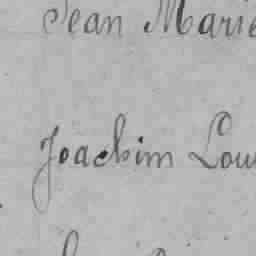 Jean Marie
Joachim Lou